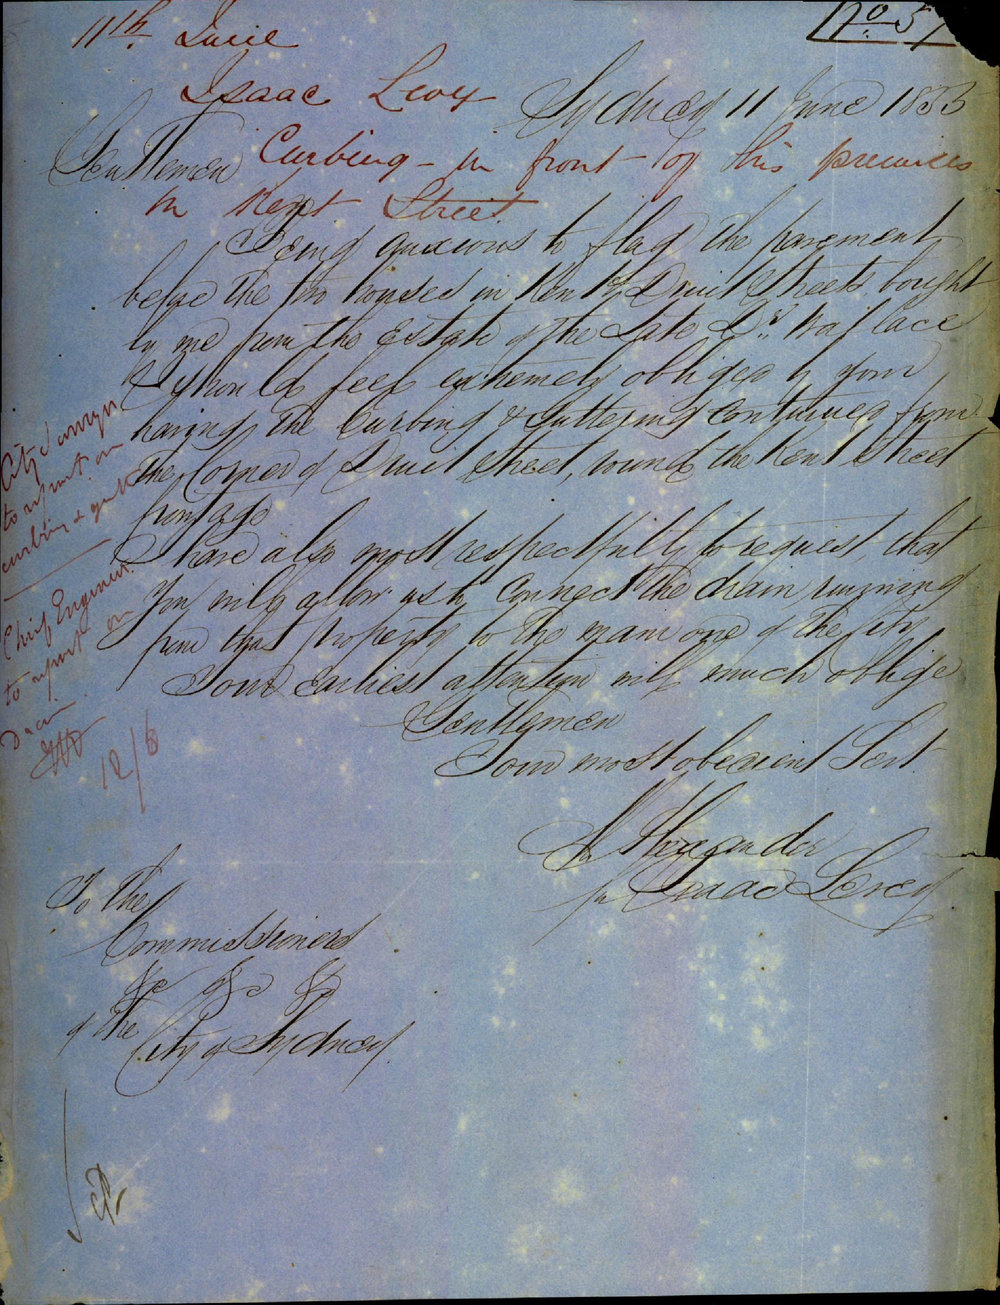 11th June
No 57
Isaac Levy
Sydney 11 June 1855
Gentlemen
Curbing - in front of his premises
in Kent Street
Being anxious to flag the pavement
before the two houses in Kent & Druit Streets bought
by me from the Estate of the Late Dr. Wallace
I shou'd feel extremely obliged by your
having the Curbing & Guttering continued from
the Corner of Druit Street, round the Kent Street
frontage
I have also most respectfully to request, that
You will allow us to Connect the drain running
from that property to the main one of the City
Your Earliest attention will much oblige
Gentlemen
Your most obedient Servt
Alexander
for Isaac Levey
City Surveyor
to report on
curbing & gutt
Chief Engineer
to report on
Drain
12/6
To the
Commissioners
&c &c &c
of the
City of Sydney